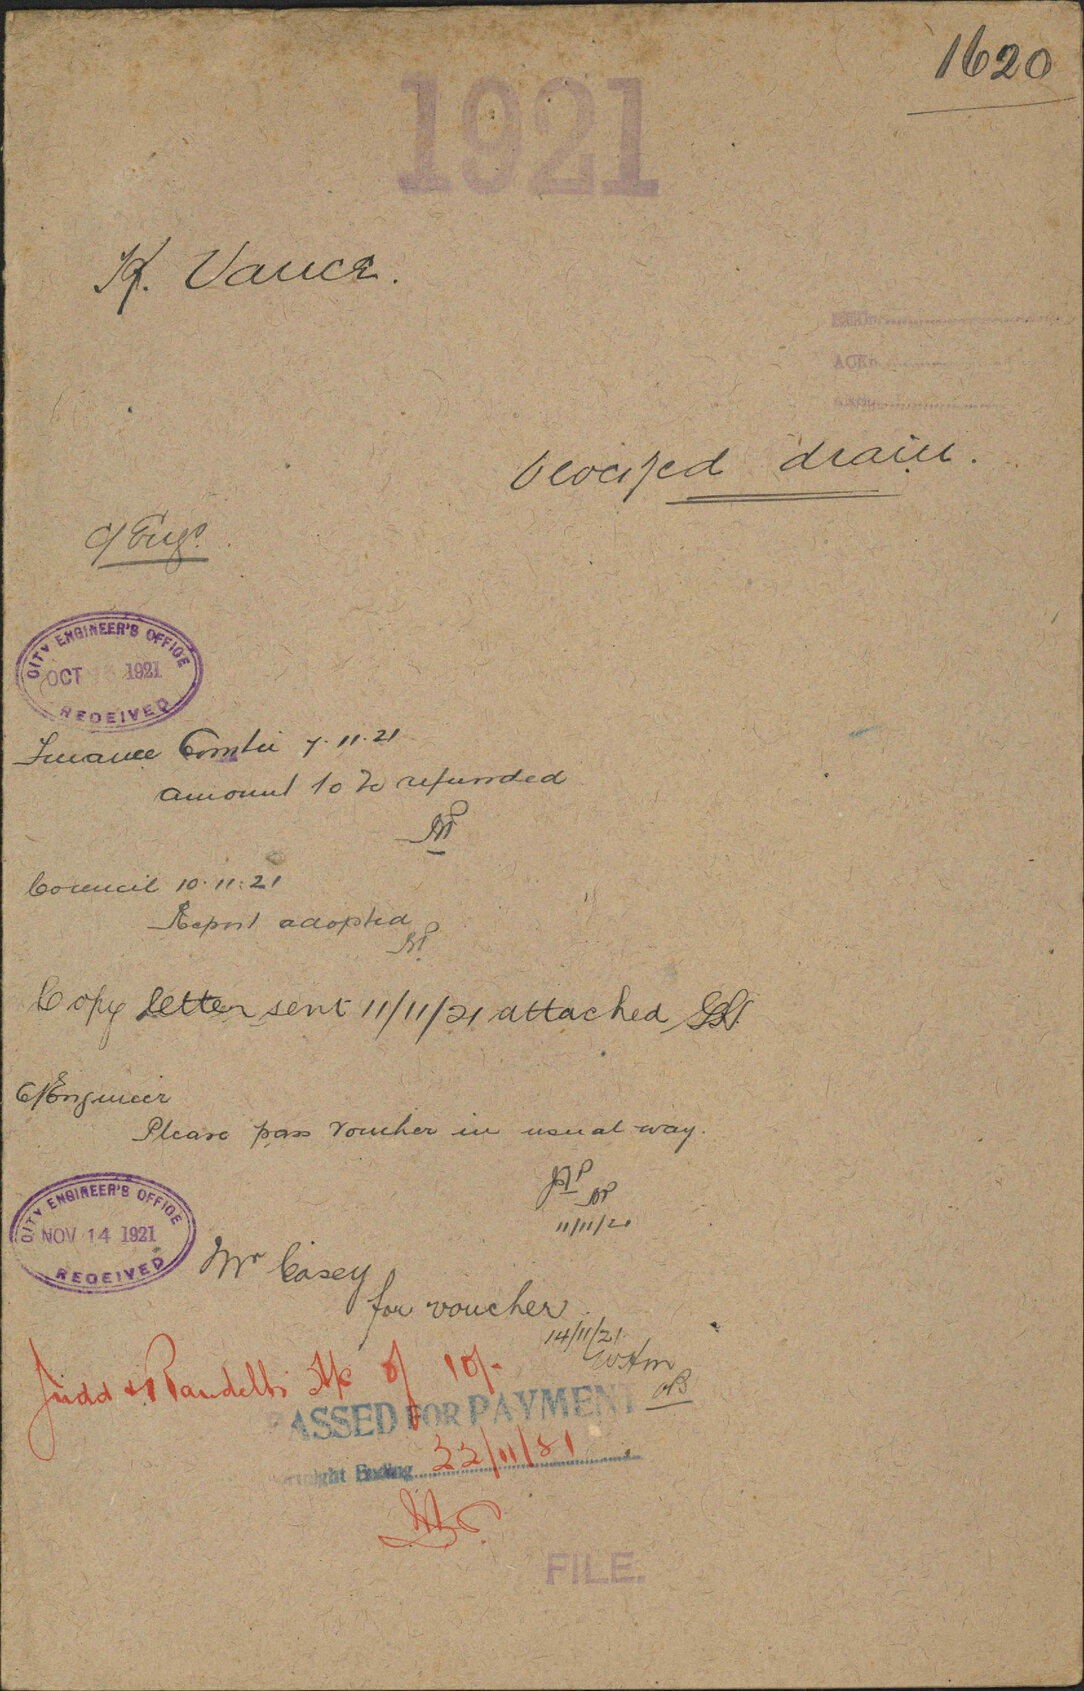 1620
1921
K. Vance.
READ
ACK
ANS
blocked drain.
C/Engr.
CITY ENGINEER'S OFFICE
OCT 1921
RECEIVED
Finance Comtee 7.11.21
amount to be refunded
Council 10.11.21
Report adopted
Copy letter sent 11/11/21 attached
C/Engineer
Please pass voucher in usual way.
11/11/21
CITY ENGINEER'S OFFICE
NOV 14 1921
RECEIVED
Mr Casey
for voucher
14/11/21
Judd & Randells of 10/-
PASSED FOR PAYMENT
Fortnight Ending 22/11/21
FILE.